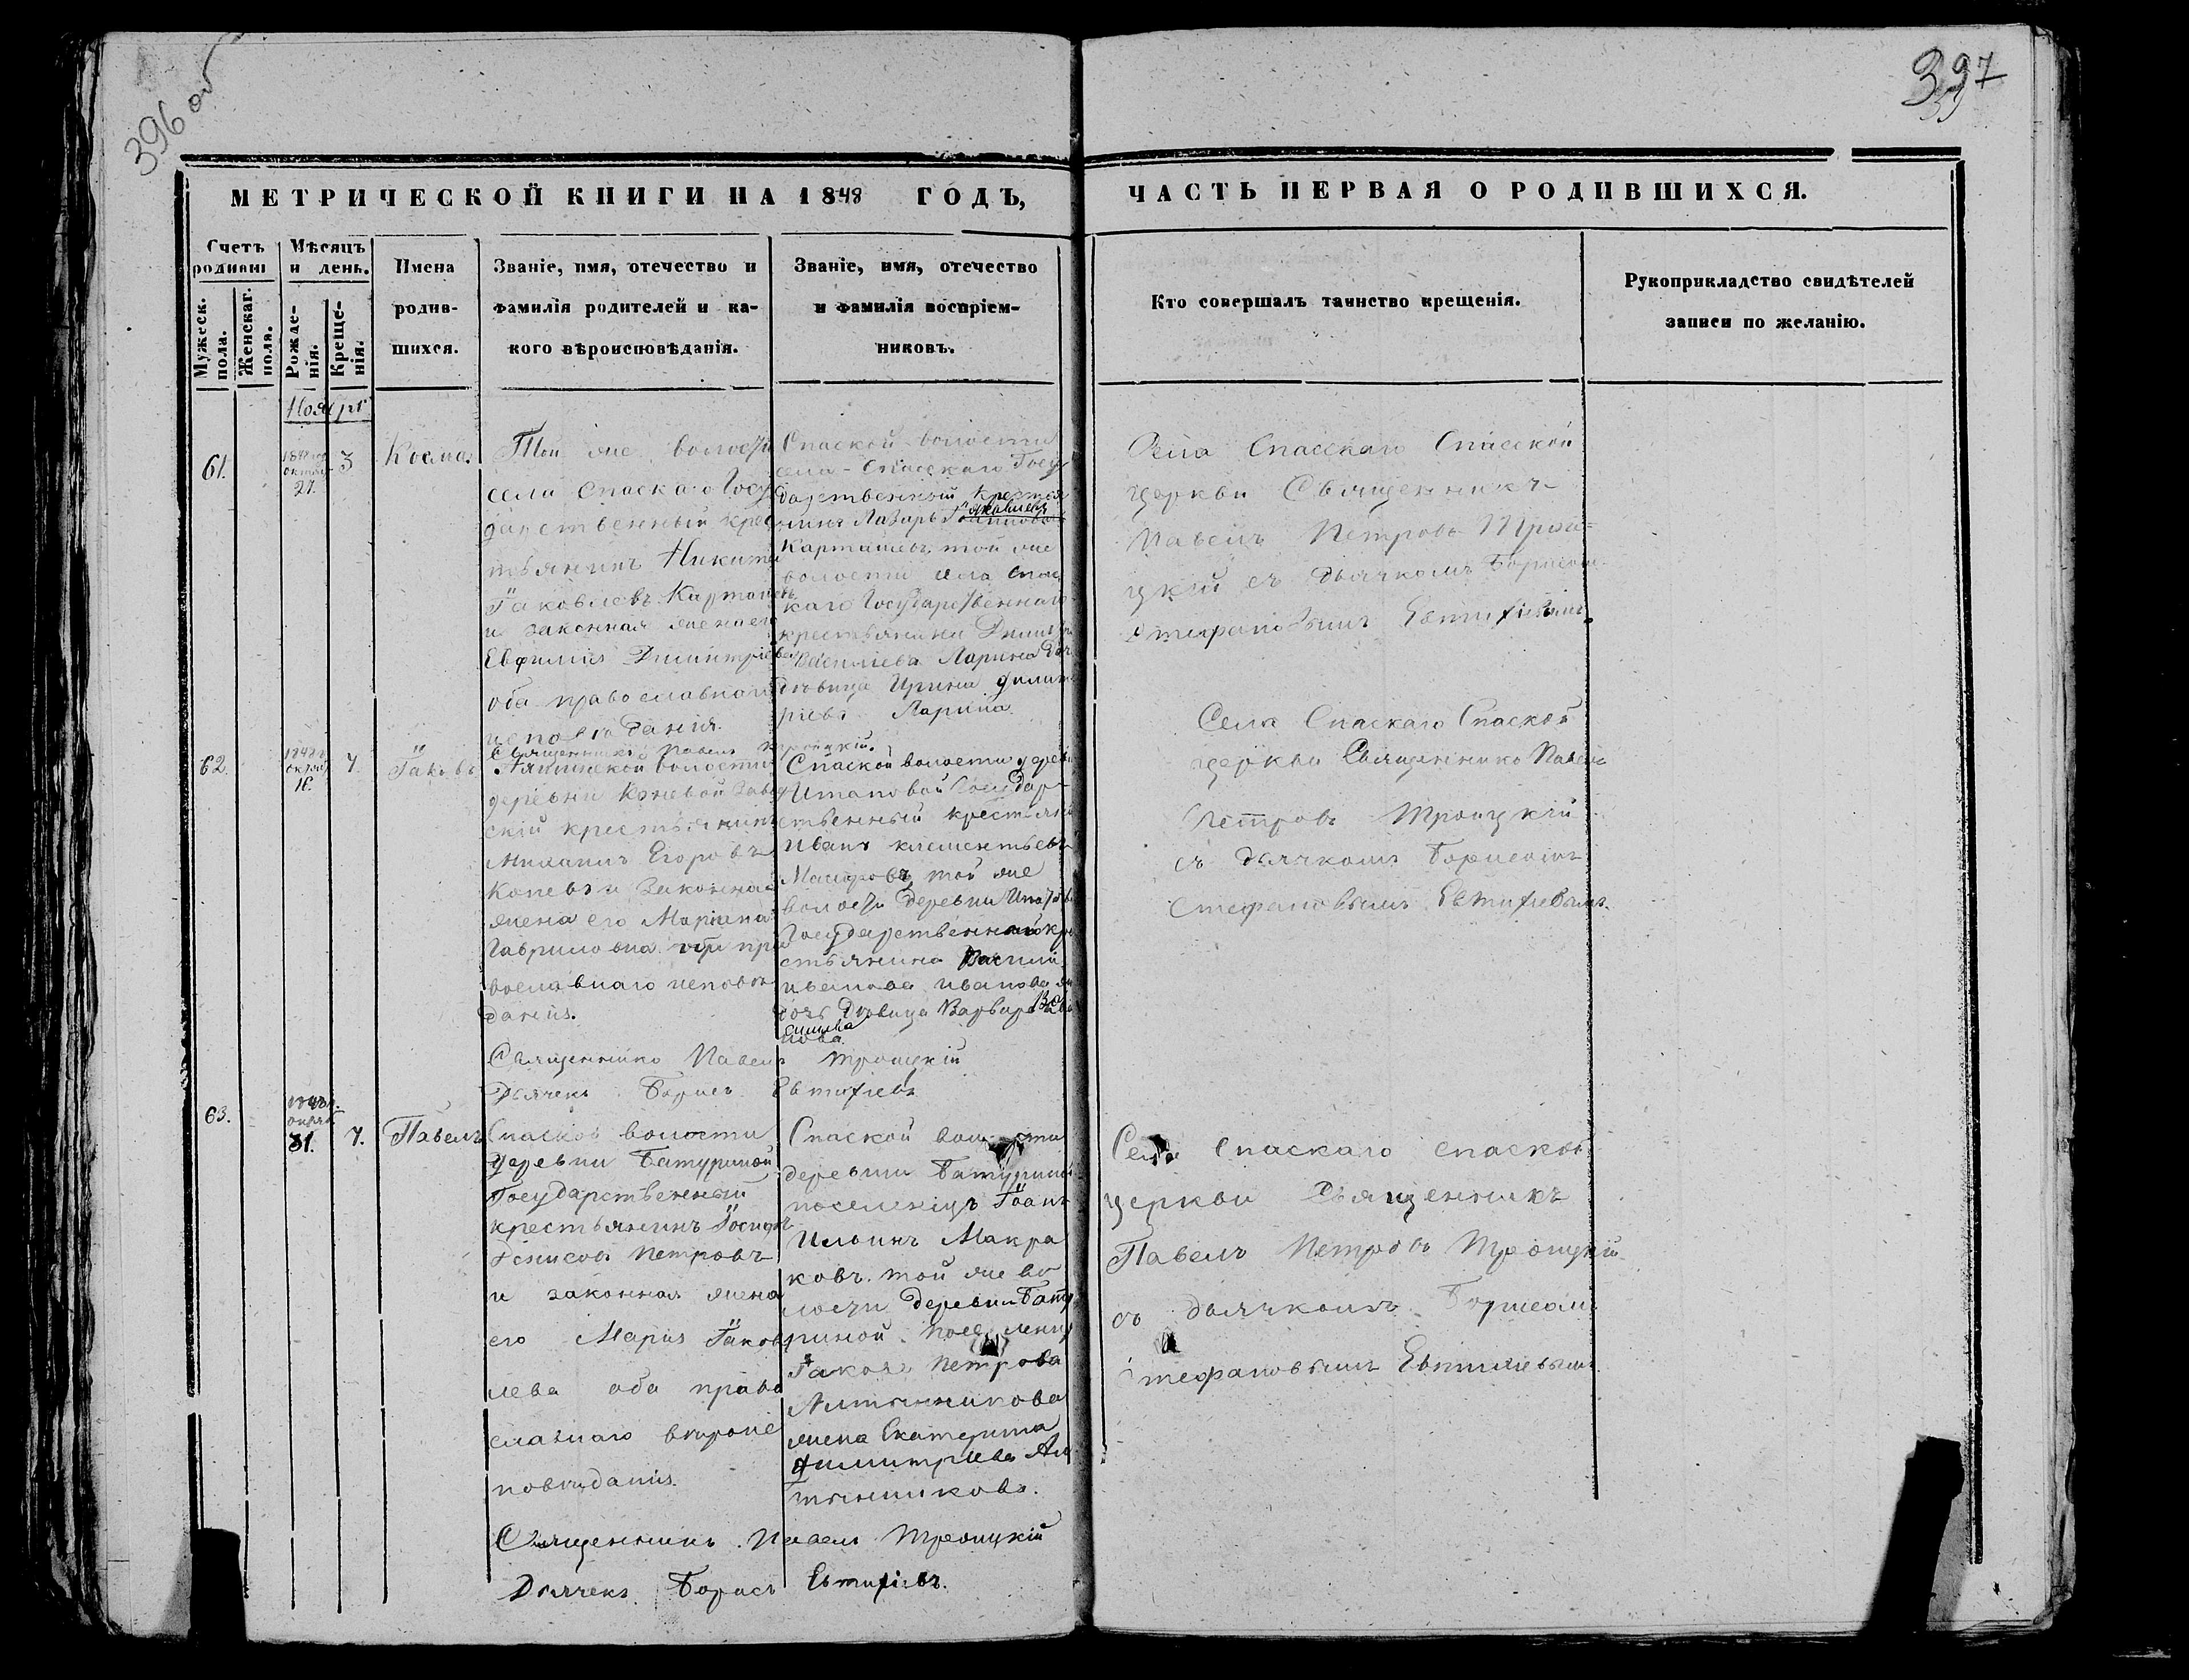 396 об
397
МЕТРИЧЕСКОЙ КНИГИ НА 1848 ГОДЪ,
ЧАСТЬ ПЕРВАЯ О РОДИВШИХСЯ.
Счетъ
родивш
Мужеск.
пола.
Женскаг.
пола.
Мѣсяцъ
и день.
Рожде-
нія.
Креще-
нія.
Имена
родив-
шихся.
Званіе, имя, отечество и
фамилія родителей и ка-
кого вѣроисповѣданія.
Званіе, имя, отечество
и фамилія воспріем-
никовъ.
Кто совершалъ таинство крещенія.
Рукоприкладство свидѣтелей
записи по желанію.
Ноябрь
61.
27.
3
Косма.
Той же волости
села Спаскаго Госу
дарственный крес
тьянинъ Никита
Іаковлевъ Карташевъ
и законная жена его
Евфимія Димитріева
оба православнаго
исповѣданія.
Спаской волости
села Спасскаго Госу
дарственный крестья
нинъ Лазарь
Іаковлевъ
Карташевъ той же
волости села Спас
каго Государственнаго
крестьянина
Васильева Ларина до
дѣвица Ирина Димит
ріева Ларина.
Села Спасскаго Спасской
церкви Священникъ
Павелъ Петровъ Трои=
цкій съ дьячкомъ Борисом
Стефановымъ Евтифіевымъ.
Священникъ Павелъ Троицкій.
62.
16.
7.
Іаковъ
волости
деревни Коневой
скій крестьянинъ
Егоровъ
Коневъ и законная
жена его Маріана
Гавриловна оба пра
вославнаго исповѣ
данія.
Спаской волости дерев
Ипатовой Государ
ственный крестьяни
Иванъ Клементьевъ
той же
волости деревни
Государственнаго кре
стьянина Василія
Иванова
дочь Дѣвица Варвара
Села Спаскаго Спаской
церкви Священникъ Павелъ
Петровъ Троицкій
съ дьячкомъ Борисомъ
Стефановымъ Евтифіевымъ.
Священникъ Павелъ Троицкій
Дьячекъ Борисъ Евтифіевъ
63.
31.
7.
Павелъ
Спаской волости
деревни Батуриной
Государственный
крестьянинъ Іосифъ
Денисовъ Петровъ
и законная жена
его Марія Іаков
лева оба право
славнаго вѣроис
повѣданія.
Спаской волости
деревни Батуриной
поселенецъ Іоанъ
Ильинъ Макра
ковъ той же во
лости деревни Бату
риной поселенца
Іакова Петрова
Алтынникова
жена Екатерина
Димитріева Ал
тынникова.
Села Спаскаго Спаской
церкви Священникъ
Павелъ Петровъ Троицкій
съ дьячкомъ Борисомъ
Стефановымъ Евтифіевымъ
Священникъ Павелъ Троицкій
Дьячекъ Борисъ Евтифіевъ.